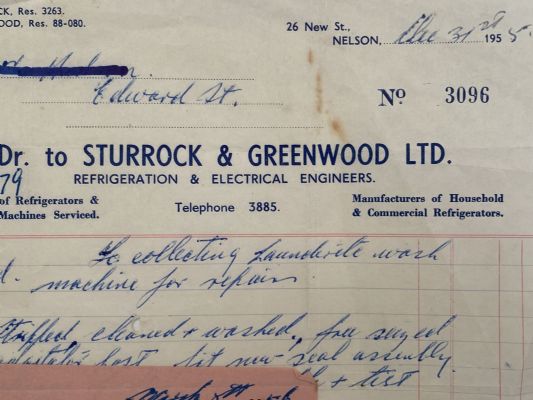 CK, Res. 3263.
OOD, Res. 88-080.
26 New St.,
NELSON, Dec 31st 1955.
Edward St.
No 3096
Dr. to STURROCK & GREENWOOD LTD.
79
REFRIGERATION & ELECTRICAL ENGINEERS.
of Refrigerators &
Machines Serviced.
Telephone 3885.
Manufacturers of Household
& Commercial Refrigerators.
To collecting Launderite wash
machine for repairs.
cleaned & washed, free
fit new seal assembly
& test